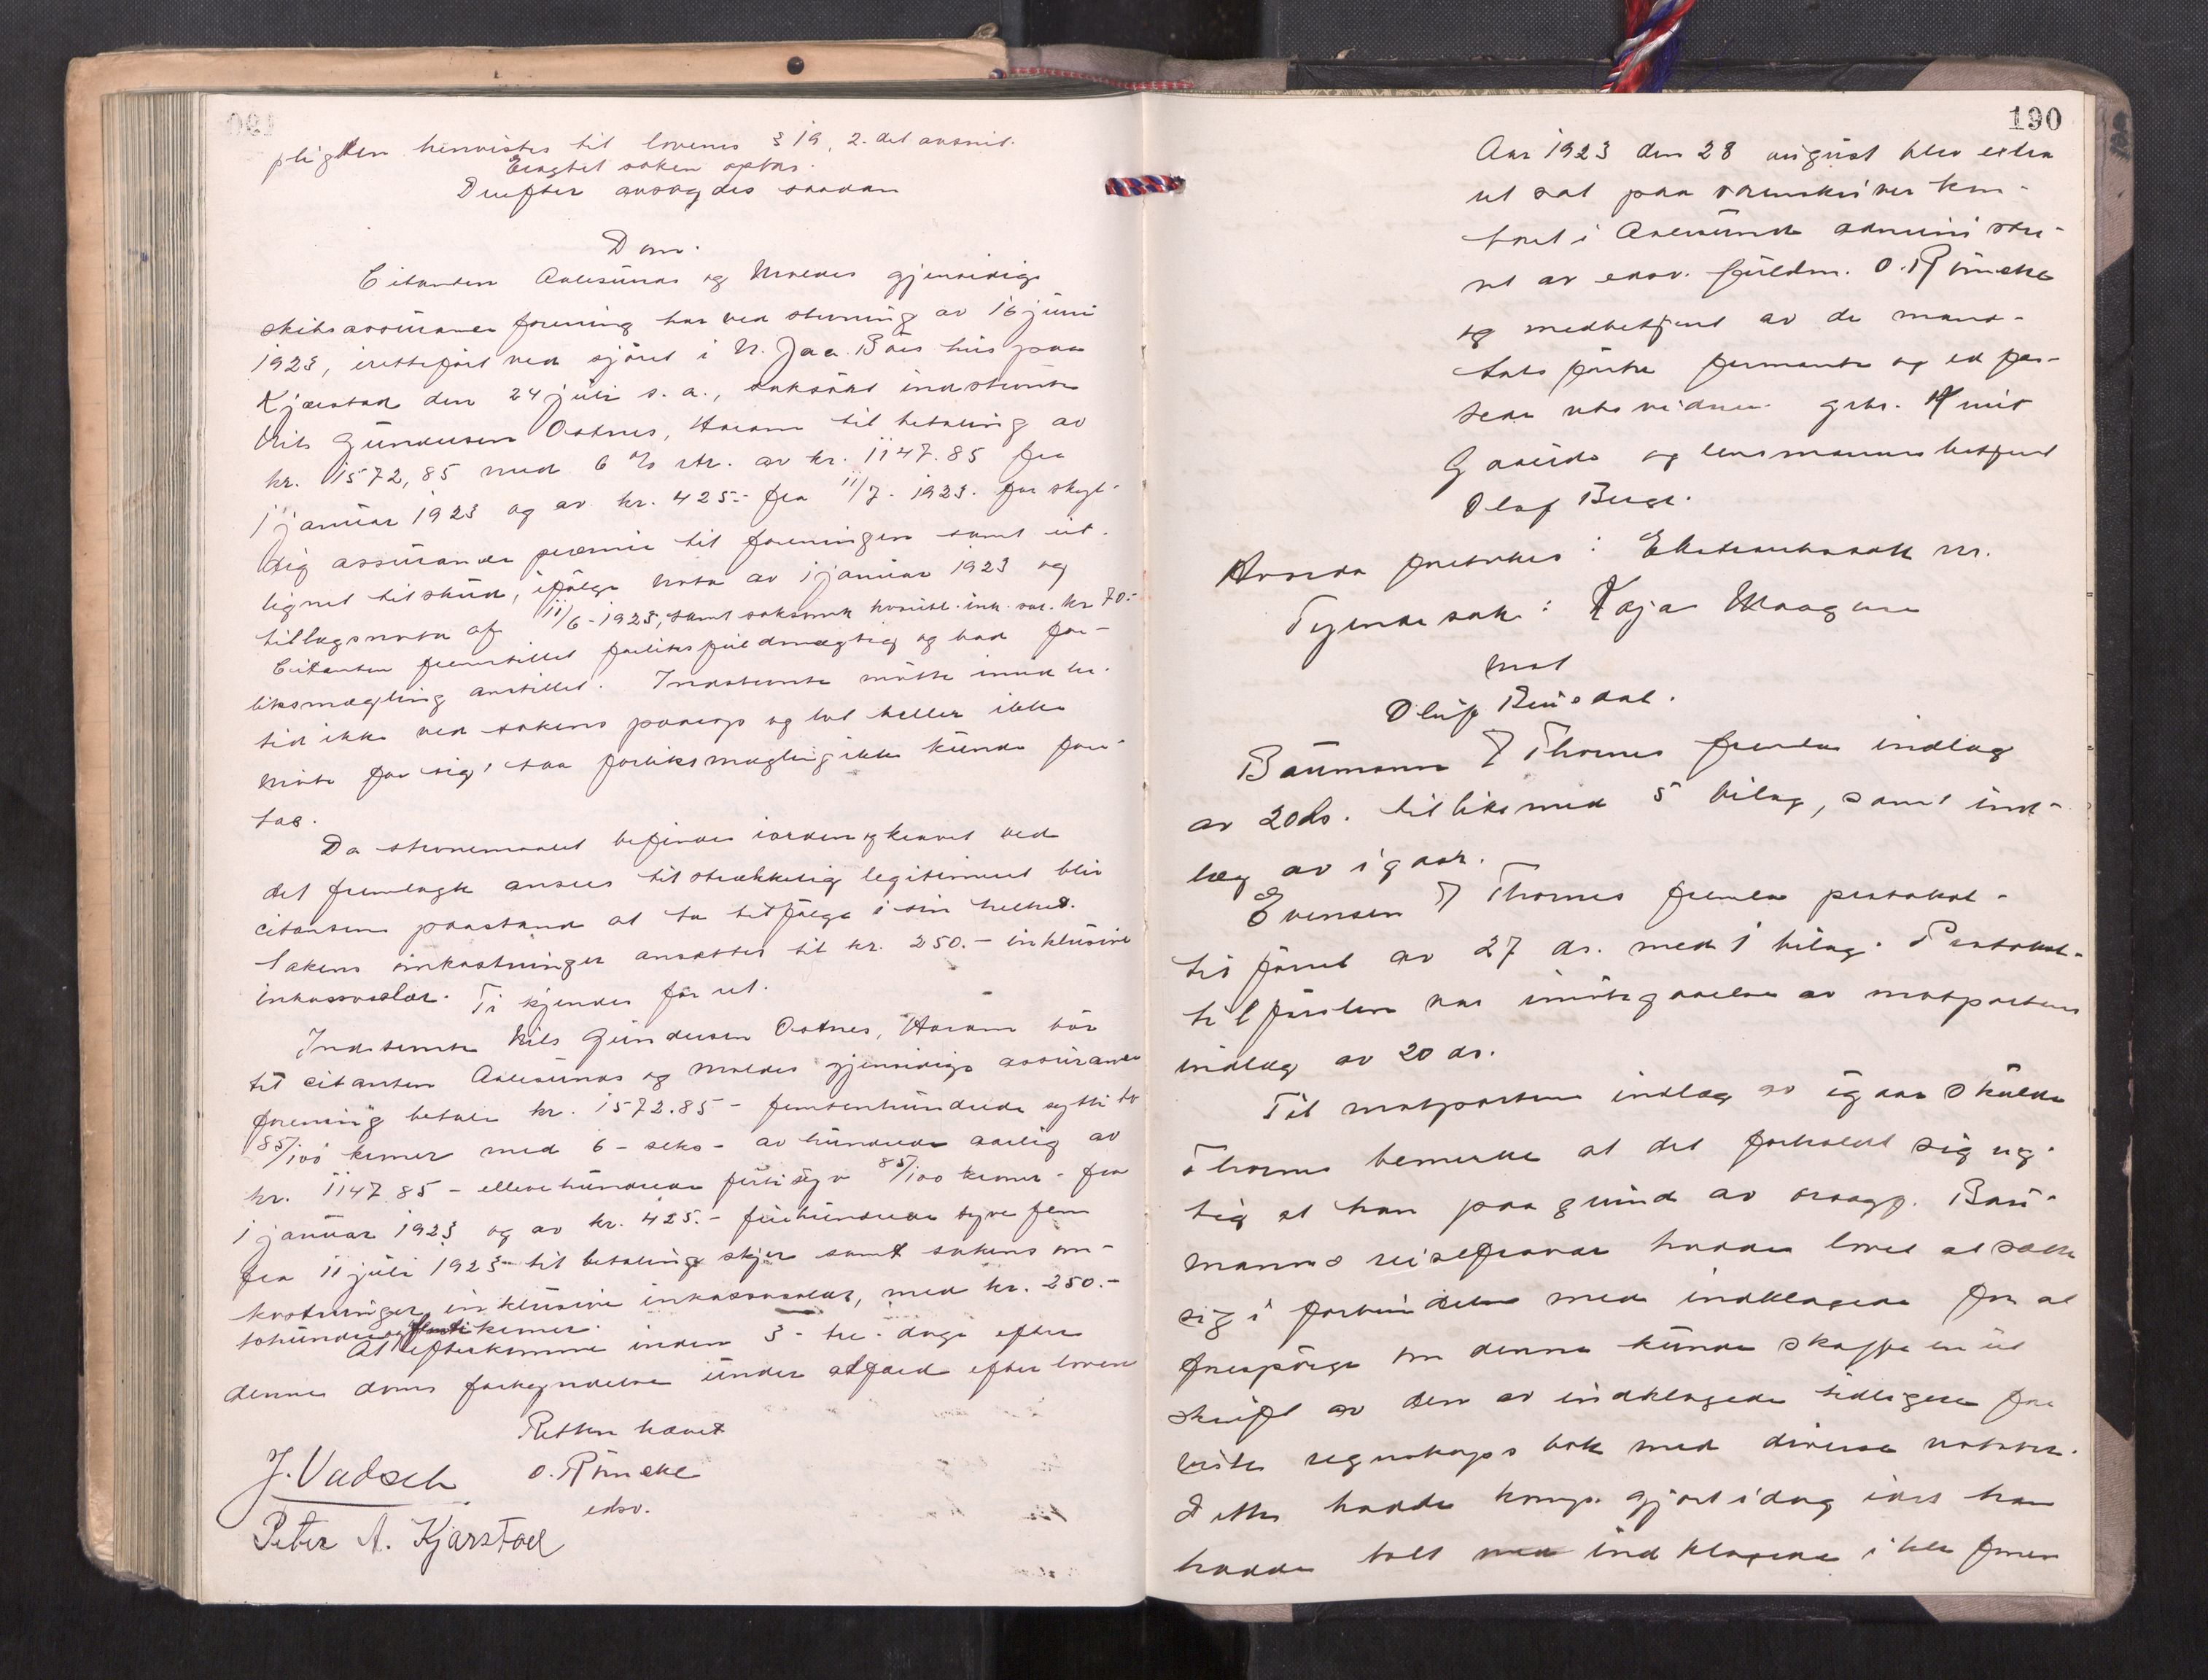 pligten henvistes til lovens § 19, 2. det avsnit.
Eragtet saken optas.
Derefter avsagdes saadan
Dom.
Citanten Aalesunds og Moldes gjensidige
skibsassurance forening har ved stevning av 16 juni
1923, iretteført ved sjøret i N. Jaa. Bøes hus paa
Kjærstad den 24 juli s. a., saksøkt indstevnte
Nils Gundersen Oxnes, Haram til betaling av
kr. 1572,85 med 6 % rtr. av kr. 1147.85 fra
1 januar 1923 og av kr. 425.- fra 11/7. 1923. for skyl-
dig assurance præmie til foreningen samt ut-
lignet tilskud, ifølge nota av 1 januar 1923 og
tillægsnota af 11/6-1923, samt saksomk. ink. sal. kr 70.-
Citanten fremstillet forliksfuldmægtig og bad for-
liksmægling anstillet. Indstevnte møtte imidler-
tid ikke ved sakens paarop og lot heller ikke
møte for sig, saa forliksmægling ikke kunde fore-
taes.
Da stevnemaalet befindes iorden og kravet ved
det fremlagte ansees tilstrækkelig legitimert blir
citantens paastand at ta tilfølge i sin helhet.
Sakens omkostninger ansættes til kr. 250.- inklusive
inkassosalær. Ti kjendes for ret.
Indstevnte Nils Gundersen Oxnes, Haram bør
til citanten Aalesunds og Moldes gjensidige assurance
forening betale kr. 1572.85 - femtenhundrede sytti to
85/100 kroner med 6 - seks - av hundrede aarlig av
kr. 1147.85 - ellevehundrede førti syv 85/100 kroner - fra
1 januar 1923 og av kr. 425.- firehundrede tyve fem
fra 11 juli 1923 til betaling skjer samt sakens om-
kostninger, inklusive inkassosalær, med kr. 250.-
tohundrede og femti kroner.
At efterkomme inden 3 - tre - dage efter
denne doms forkyndelse under adfærd efter loven
Retten hævet
J. Vadseth O. Rømcke
edsv.
Peter A. Kjærstad
190
Aar 1923 den 28 august blev extra
ret sat paa sorenskriver kon-
toret i Aalesund administre-
ret av edsv. fuldm. O. Rømcke
og medbetjent av de mand-
talsførte fermante og ed fæ-
stede retsvidner grbr. Knut
Gaaseide og lensmannsbetjent
Olaf Berge.
Hvorda foretokes: Ekstraretssak nr.
Tyende sak: Kaja Maagerø
mot
Oluf Brusdal.
Baumann f Thornes fremla indlæg
av 20 ds. tillikemed 5 bilag, samt ind-
læg av igaar.
Evensen f Thornes fremla protokol-
tilførsel av 27 ds. med 1 bilag. Protokol-
tilførslen var imøtegaaelse av motpartens
indlæg av 20 ds.
Til motpartens indlæg av igaar skulde
Thornes bemerke at det forholdt sig rig-
tig at han paa grund av orsagf. Bau-
manns reisefravær hadde lovet at sætte
sig i forbindelse med indklagede for at
forespørge om denne kunde skaffe en ut
skrift av den av indklagede tidligere fore
viste regnskaps bok med diverse notater.
Dette hadde komp. gjort idag idet han
hadde talt med indklagede ikke før